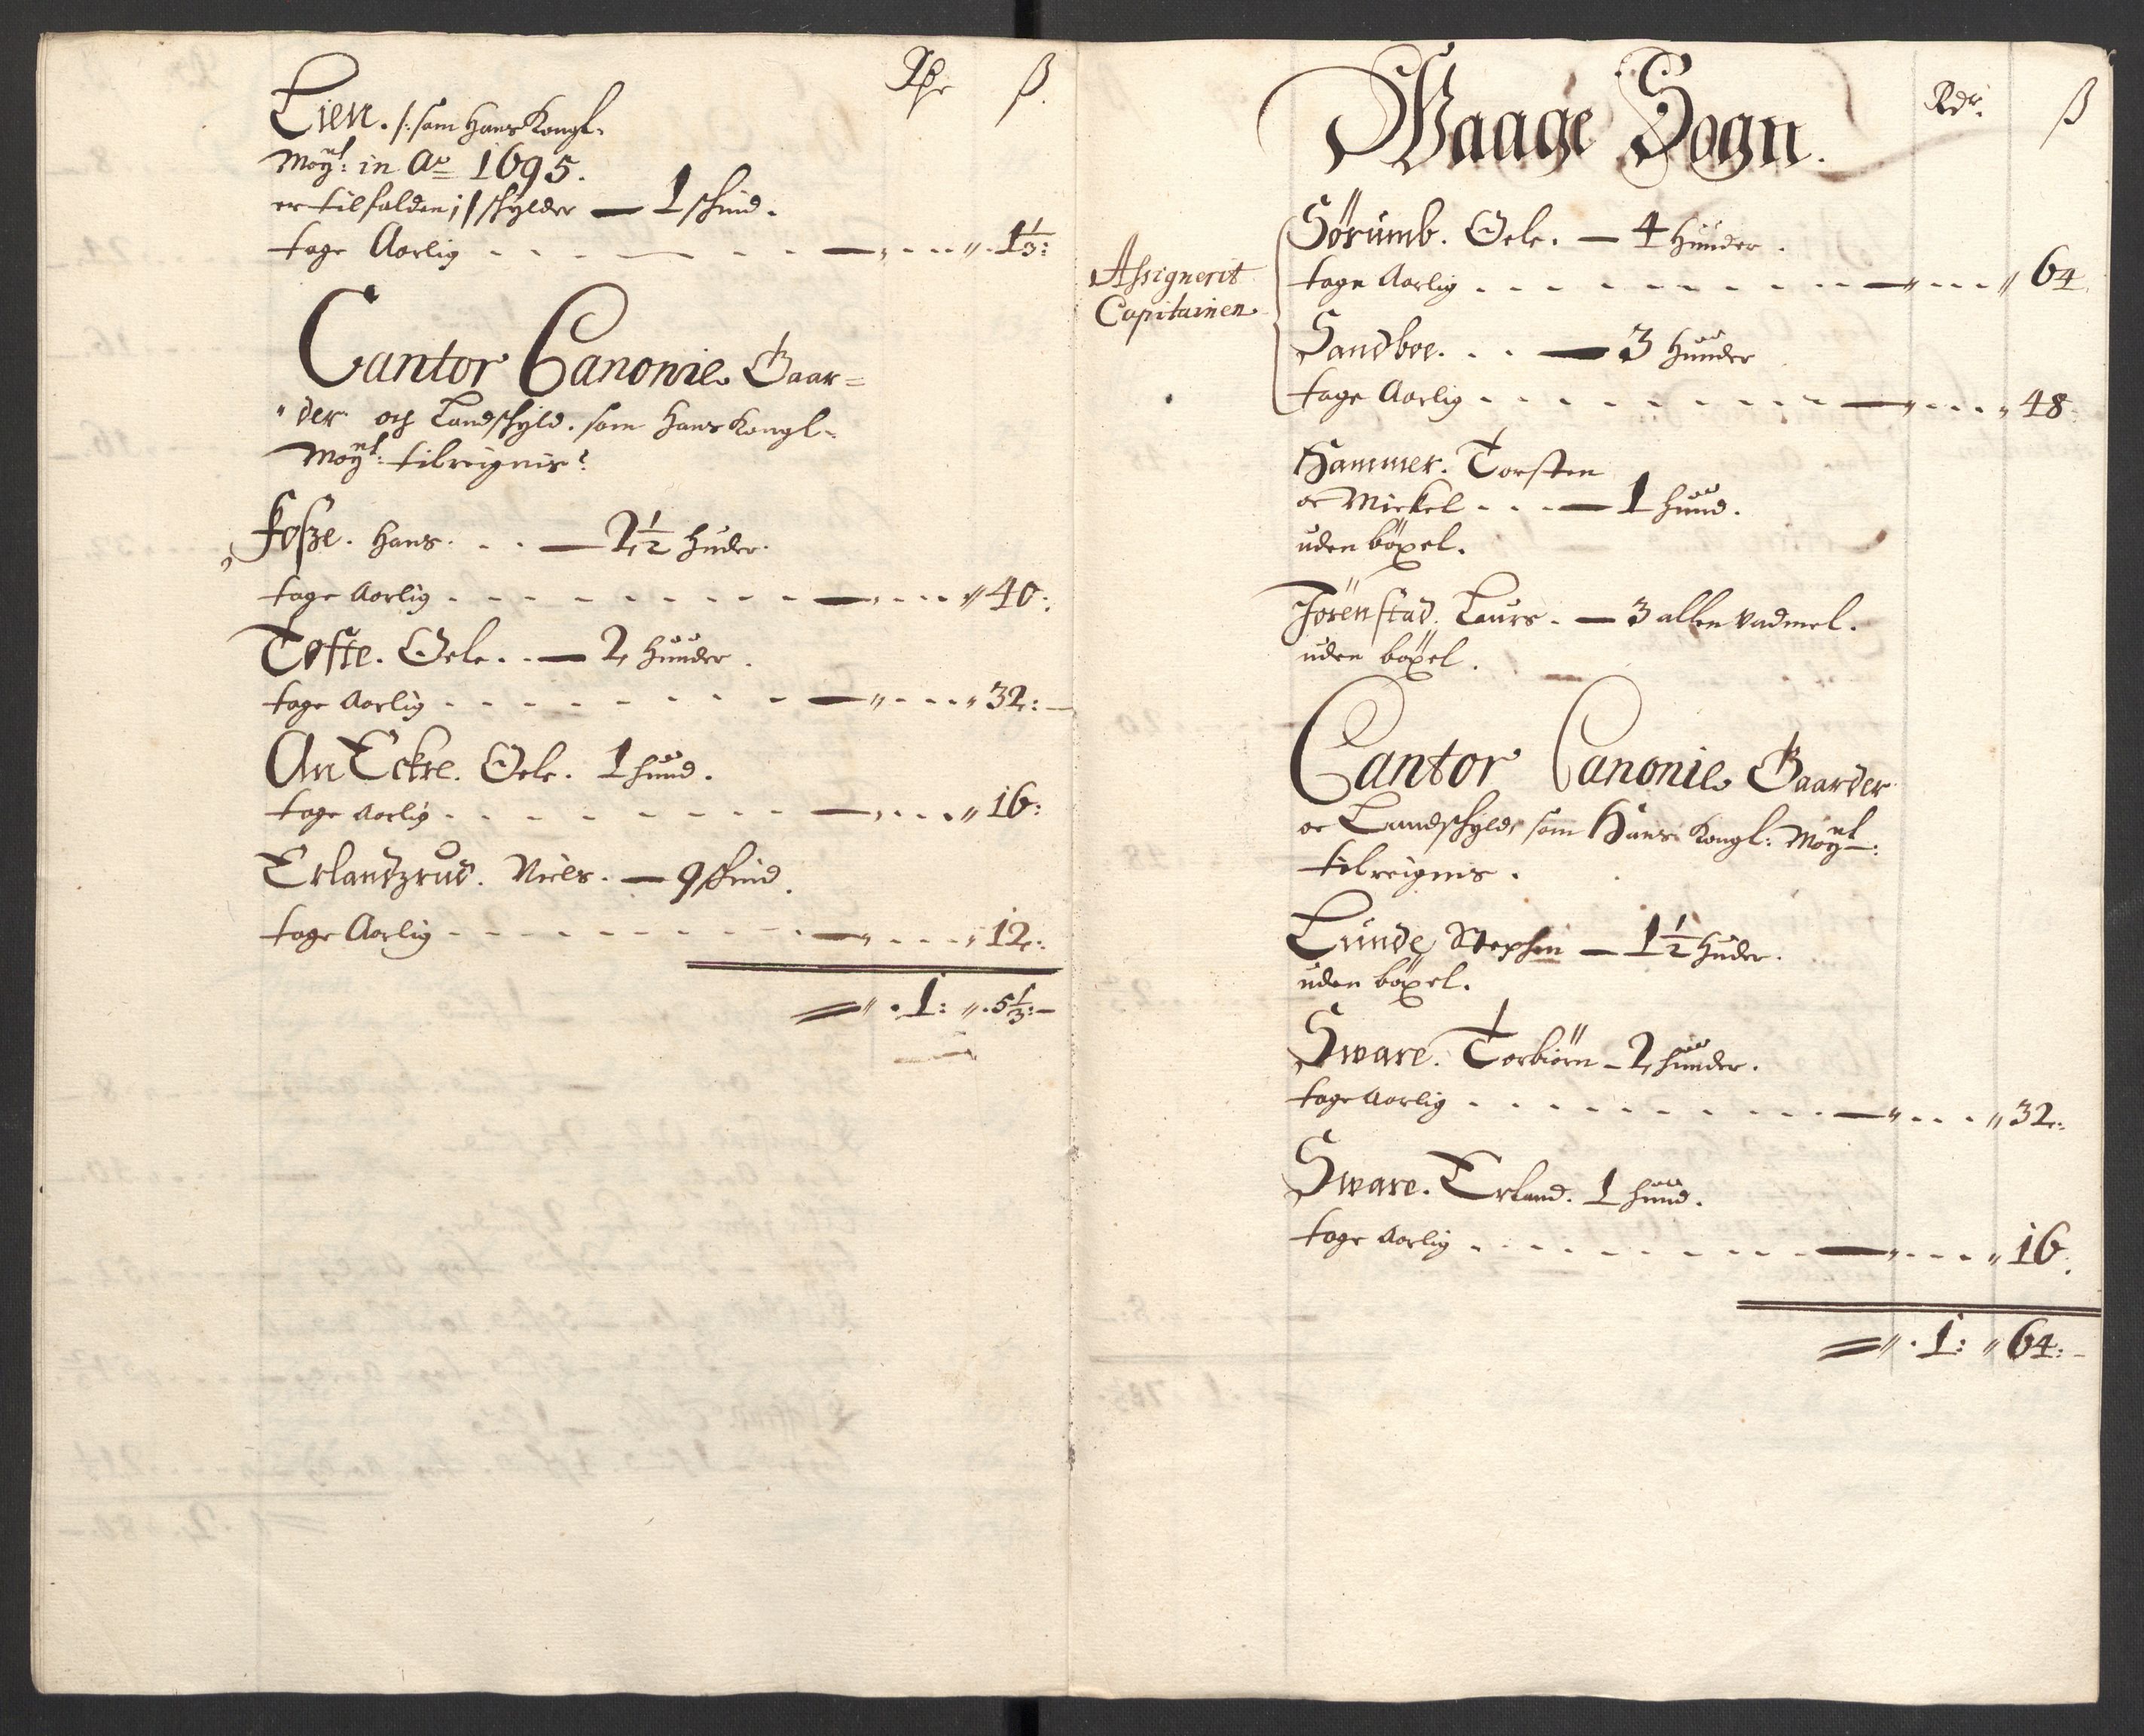 Rdr ß.
Lien. /: som Hans Kongl.
Mayt: in Ao 1695.
er tilfalden :/ schylder — 1 schind.
tage Aarlig . . . — „ . . . „ . 1⅓:
Cantor Canonie Gaar=
"der och Landschyld. som Hans Kongl.
Mayt: tilreignis:
Fosze. Hans. . . — 2½ Huder.
tage Aarlig . . . — „ . . . „ 40:
Tofte. Oele. . — 2 Huuder.
tage Aarlig . . . — „ . . . „ 32:
An Eckre. Oele. 1 huud.
tage Aarlig . . . — „ . . . „ 16:
Erlandzrud. Niels. — 9 skind.
tage Aarlig . . . — „ . . . „ 12:
„ . 1: „ . 5⅓:
Waage Sogn.
Rdr. ß
Assignerit
Capitainen
Sörumb. Oele. — 4 Huuder.
tage Aarlig . . . — „ . . . „ 64
Sandboe. . . — 3 Huuder
tage Aarlig . . . — „ . . . „ 48
Hammer. Torsten
oc Mickel . . . — 1 huud.
uden böxel.
Jörenstad. Laurs. — 3 allen vadmel.
uden böxel.
Cantor Canonie Gaarder
oc Landschyld som Hans Kongl: Mayt:
tilreignis.
Lunde Stephen — 1½ Huder.
uden böxel.
Sware. Torbiörn — 2 huuder.
tage Aarlig . . . — „ . . . „ 32:
Sware. Erland. 1 huud.
tage Aarlig . . . — „ . . . „ 16.
„ . 1: „ 64: